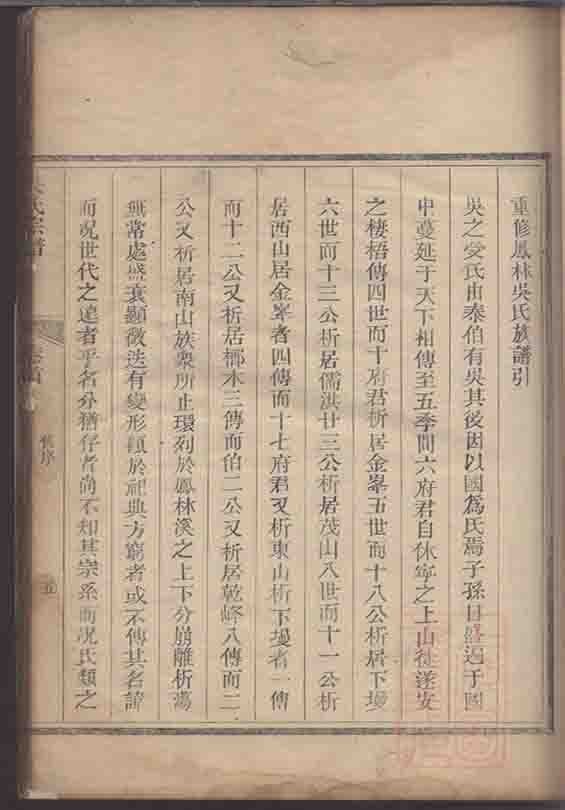 重修鳳林吳氏族譜引
吳之受氏由泰伯有吳其後因以國爲氏焉子孫日盛過于國
中蔓延于天下相傳至五季間六府君自休寧之上山徙遂安
之棲梧傳四世而十府君析居金峯五世而十八公析居下塢
六世而十三公析居儒洪廿三公析居茂山八世而十一公析
居西山居金峯者四傳而十七府君又析東山析下塢者一傳
而十二公又析居槨木三傳而伯二公又析居乾峰八傳而二
公又析居南山族衆所止環列於鳳林溪之上下分崩離析蕩
無常處盛衰顯微迭有變形顯於祀典方窮者或不傳其名諱
而況世代之遠者乎名分猶存者尚不知其宗系而況氏類之
氏宗譜
卷首
舊序
五